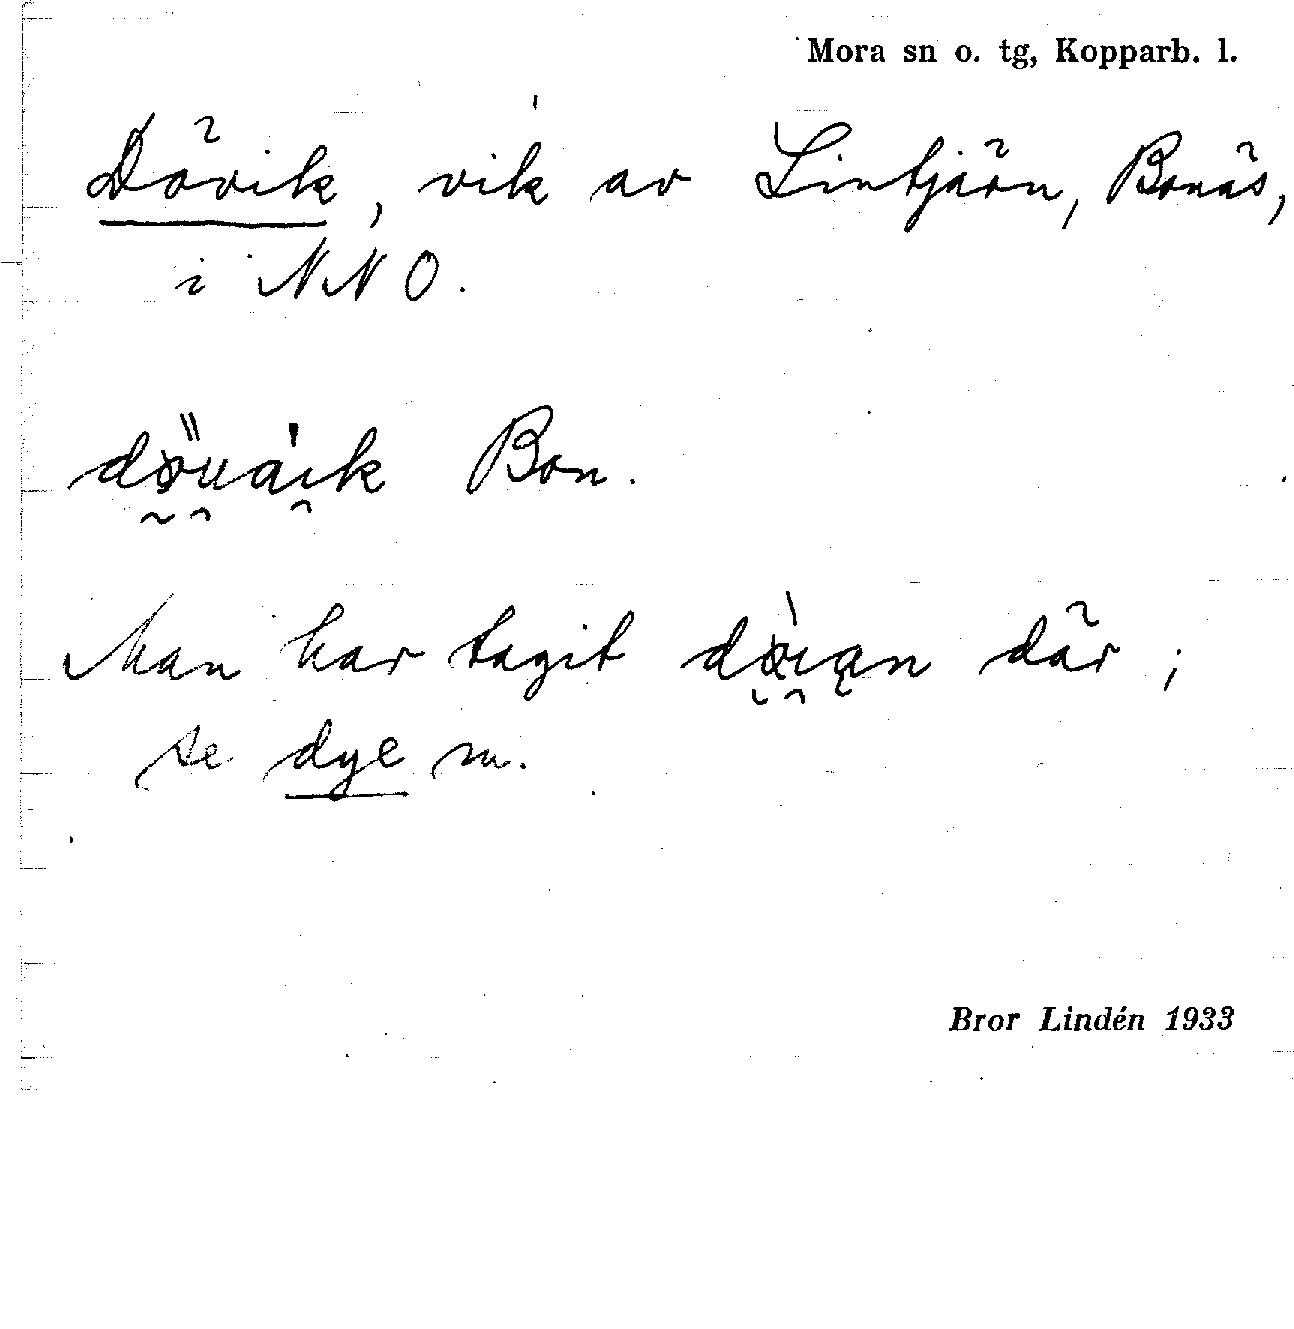 Mora sn o. tg, Kopparb. l.
Dövik, vik av Lintjärn, Bonäs,
i NNO.
Bon.
Man har tagit där;
se dye m.
Bror Lindén 1933